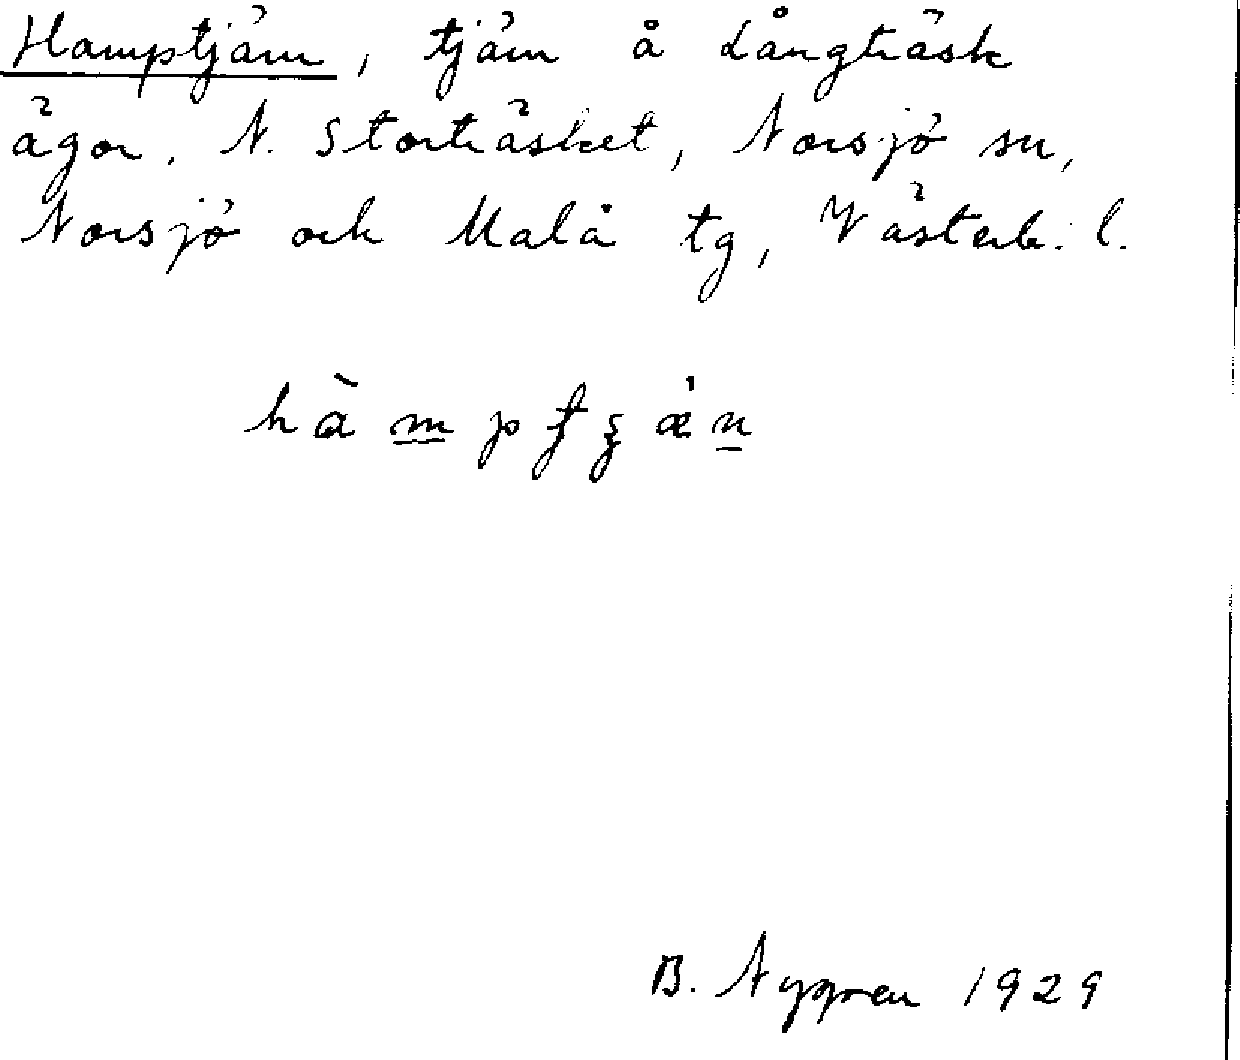 Hamptjärn, tjärn å Långträsk
ägor, N. Storträsket, Norsjö sn,
Norsjö och Malå tg, Västerb. l.
B. Nygren 1929